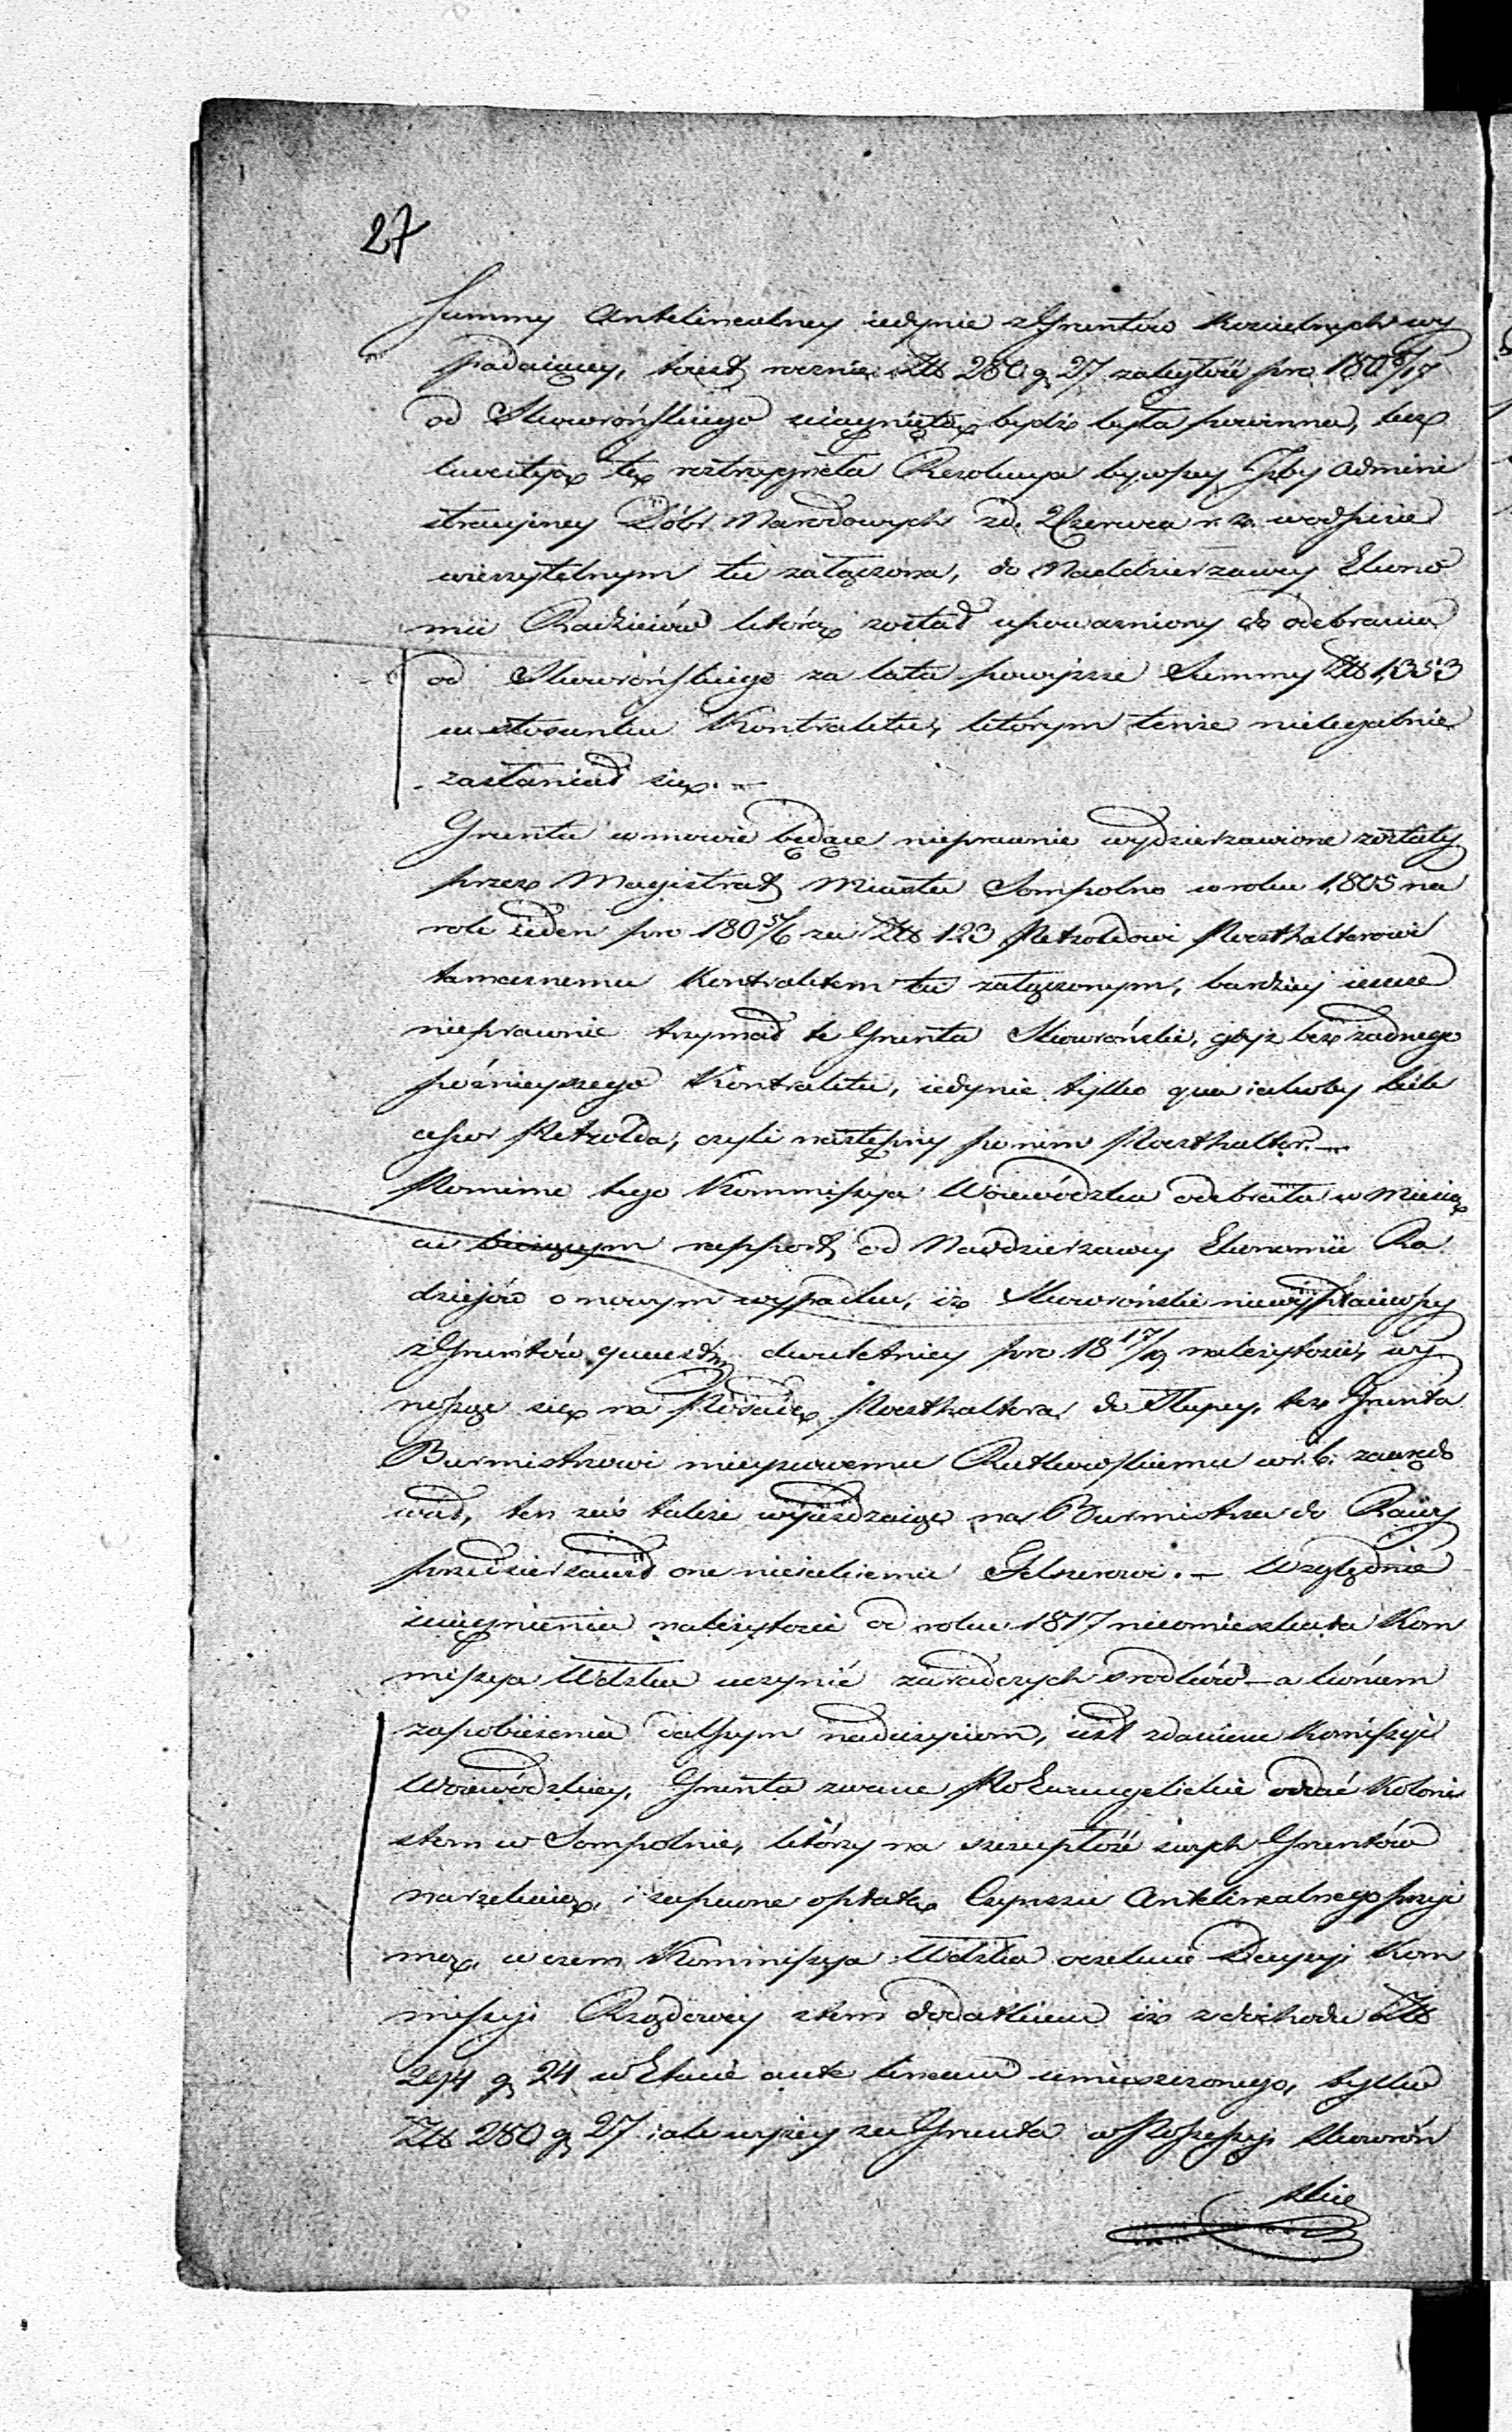 27
Summy Antelinealney iedynie z Gruntów Kościelnych wy
padaiącey, to iest rocznie Złł 280 g 27 zaległość pro 180 8/17
od Skowrońskiego ściągniętą bydź była powinna, lecz
kwestyą tę roztrzygnęła Rezolucya bywszey Izby Admini
stracyiney Dóbr Narodowych zd. 2 Czerwca r. z. w odpisie
wierzytelnym tu załączona, do Naddzierzawcy Ekono
mii Radzieiów którą został upoważniony do odebrania
od Skowrońskiego za lata powyższe Summy Złł 1,353
w stosunku Kontraktu, którym tenże nielegalnie
zasłaniał się. —
Grunta w mowie będące nieprawnie wydzierzawione zostały
przez Magistrat Miasta Sompolno w roku 1,805 na
rok ieden pro 180 5/6 za Złł 123 Petzoldowi Poszthalterowi
tamecznemu Kontraktem tu załączonym, bardziey ieszcze
nieprawnie trzymał te Grunta Skowroński, gdyż bez żadnego
poźnieyszego Kontraktu, iedynie tylko qua iakoby Suk
cessor Petzolda, czyli następny po nim Poszthalter. —
Pomimo tego Kommissya Woiewódzka odebrała w Miesią
cu bieżącym rapport od Naddzierzawcy Ekonomii Ra
dziejów o nowym wypadku, iż Skowroński niewypłaciwszy
z Gruntów quaest: dwuletniey pro 18 17/19 należytości, wy
nosząc się na Posadę Poszthaltera do Słupcy, też Grunta
Burmistrzowi mieyscowemu Rutkowskiemu w r. b. zaaręd
wał, ten zaś także wyieżdzaiąc na Burmistrza do Rawy
przedzierzawił one nieiakiemu Gelszerowi. — Względnie
ściągnienia należytości od roku 1817 nieomieszkała Kom
missya Wdzka uczynić zaradczych srodków — a końcem
zapobieżenia dalszym nadużyciom, iest zdaniem Komissyi
Woiewódzkiey, Grunta zwane Po Ewangelickie oddać Koloni
stom w Sompolnie, którzy na szczupłość swych Gruntów
narzekaią, i zapewne opłatę Czynszu Antelinealnego przyi
mą, w czem Kommissya Wdzka oczekuie Decyzyi Kom
missyi Rządowey z tem dodatkiem iż z dochodu Złł
294 g 24 w Etacie ante lineam umieszczonego, tylko
Złł 280 g 27 iak wyżey za Grunta w Possessyi Skowroń
skie